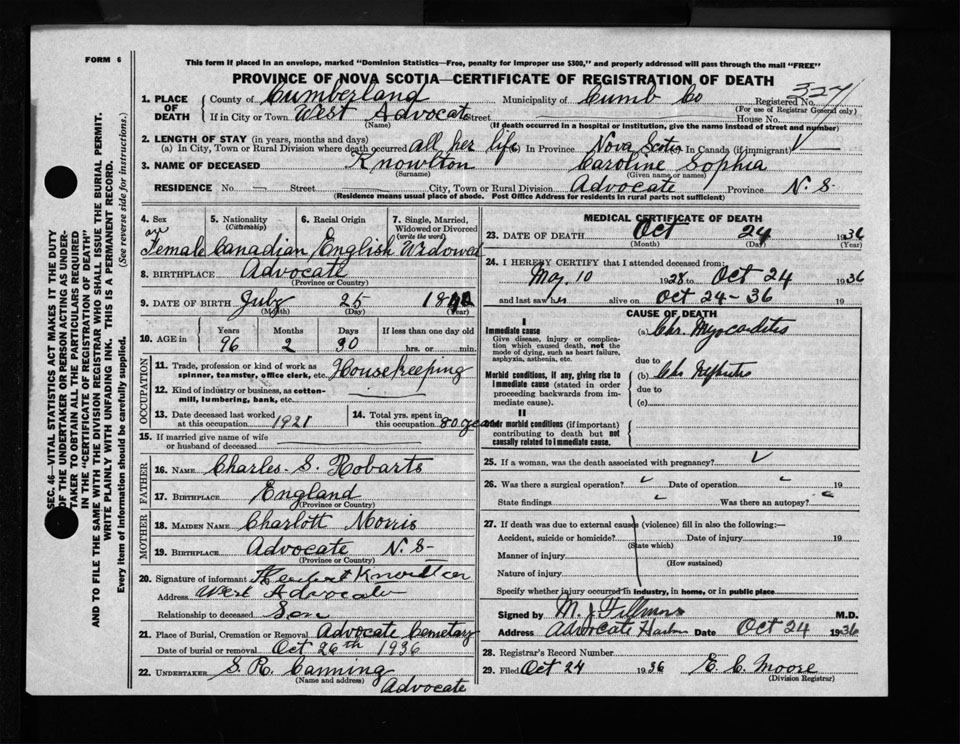 FORM 6
This form if mailed in an envelope, marked "Dominion Statistics—Free, penalty for improper use $300," and properly addressed will pass through the mail "FREE"
PROVINCE OF NOVA SCOTIA—CERTIFICATE OF REGISTRATION OF DEATH
1. PLACE OF DEATH County of Cumberland Municipality of Cumb Co Registered No. 3271
(For use of Registrar General only)
If in City or Town West Advocate Street House No.
(Name) (If death occurred in a hospital or institution, give the name instead of street and number)
2. LENGTH OF STAY (in years, months and days)
(a) In City, Town or Rural Division where death occurred all her life In Province Nova Scotia In Canada (if immigrant)
3. NAME OF DECEASED Knowlton Caroline Sophia
(Surname) (Given name or names)
RESIDENCE No. — Street City, Town or Rural Division Advocate Province N. S.
(Residence means usual place of abode. Post Office Address for residents in rural parts not sufficient)
SEC. 46—VITAL STATISTICS ACT MAKES IT THE DUTY
OF THE UNDERTAKER OR PERSON ACTING AS UNDER-
TAKER TO OBTAIN ALL THE PARTICULARS REQUIRED
IN THE "CERTIFICATE OF REGISTRATION OF DEATH"
AND TO FILE THE SAME WITH THE DIVISION REGISTRAR WHO SHALL ISSUE THE BURIAL PERMIT.
WRITE PLAINLY WITH UNFADING INK. THIS IS A PERMANENT RECORD.
Every item of Information should be carefully supplied. (See reverse side for instructions.)
4. Sex 5. Nationality (Citizenship) 6. Racial Origin 7. Single, Married, Widowed or Divorced (write the word)
Female Canadian English Widowed
8. BIRTHPLACE Advocate
(Province or Country)
9. DATE OF BIRTH July 25 18
(Month) (Day) (Year)
10. AGE in Years Months Days If less than one day old
96 2 30 hrs. or min.
OCCUPATION
11. Trade, profession or kind of work as spinner, teamster, office clerk, etc. Housekeeping
12. Kind of industry or business, as cotton-mill, lumbering, bank, etc.
13. Date deceased last worked at this occupation 1921
14. Total yrs. spent in this occupation 80 years
15. If married give name of wife or husband of deceased
FATHER
16. NAME Charles. S. Robarts
17. BIRTHPLACE England
(Province or Country)
MOTHER
18. MAIDEN NAME Charlott Morris
19. BIRTHPLACE Advocate N. S-
(Province or Country)
20. Signature of informant Herbert Knowlton
Address West Advocate
Relationship to deceased Son
21. Place of Burial, Cremation or Removal Advocate Cemetary
Date of burial or removal Oct 26th 1936
22. UNDERTAKER S. R. Canning
(Name and address) Advocate
MEDICAL CERTIFICATE OF DEATH
23. DATE OF DEATH Oct 24 1936
(Month) (Day) (Year)
24. I HEREBY CERTIFY that I attended deceased from:
May 10 1928 to Oct 24 1936
and last saw her alive on Oct 24-36 19
CAUSE OF DEATH
I
Immediate cause (a) Chr. Myocarditis
Give disease, injury or complication which caused death, not the mode of dying, such as heart failure, asphyxia, asthenia, etc.
due to
Morbid conditions, if any, giving rise to immediate cause (stated in order proceeding backwards from immediate cause). (b) Chr Nephritis
due to
(c)
II
Other morbid conditions (if important) contributing to death but not causally related to immediate cause.
25. If a woman, was the death associated with pregnancy?
26. Was there a surgical operation? Date of operation 19
State findings Was there an autopsy?
27. If death was due to external causes (violence) fill in also the following:—
Accident, suicide or homicide? Date of injury 19
(State which)
Manner of injury
(How sustained)
Nature of injury
Specify whether injury occurred in industry, in home, or in public place
Signed by M. J. Fillmore M.D.
Address Advocate Harbor Date Oct 24 1936
28. Registrar's Record Number
29. Filed Oct 24 1936 E. C. Moore
(Division Registrar)